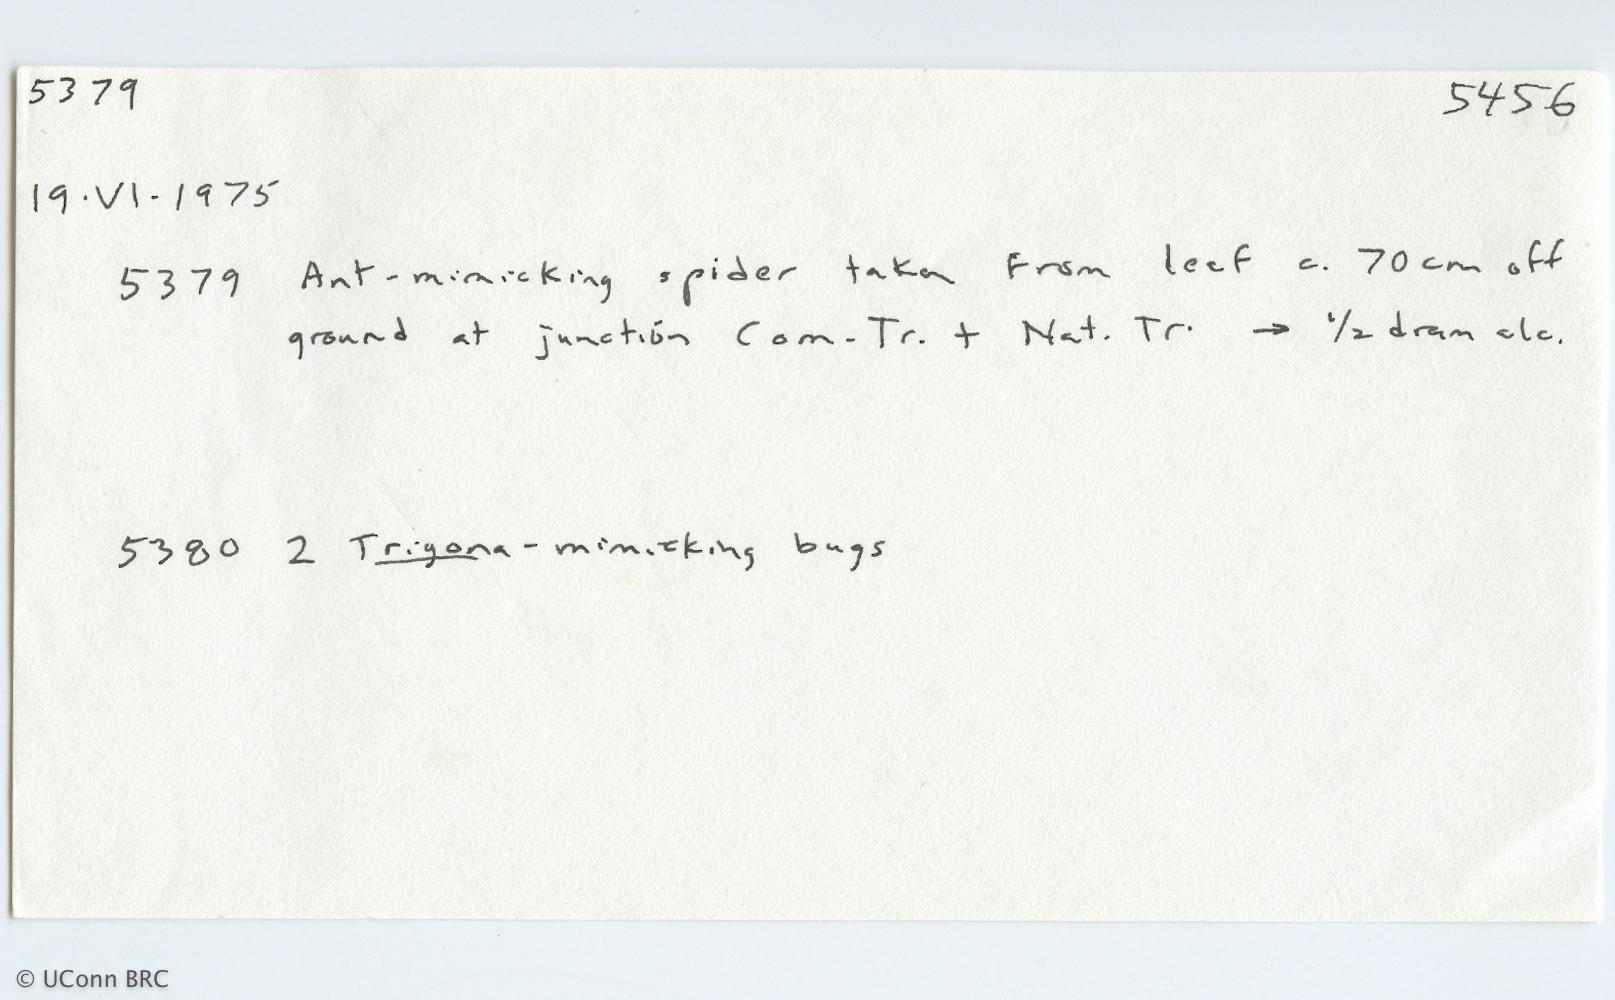 5379 5456
19.VI.1975
5379 Ant-mimicking spider taken from leaf c. 70cm off
ground at junction Com-Tr. + Nat. Tr. → 1/2 dram alc.
5380 2 Trigona-mimicking bugs
© UConn BRC